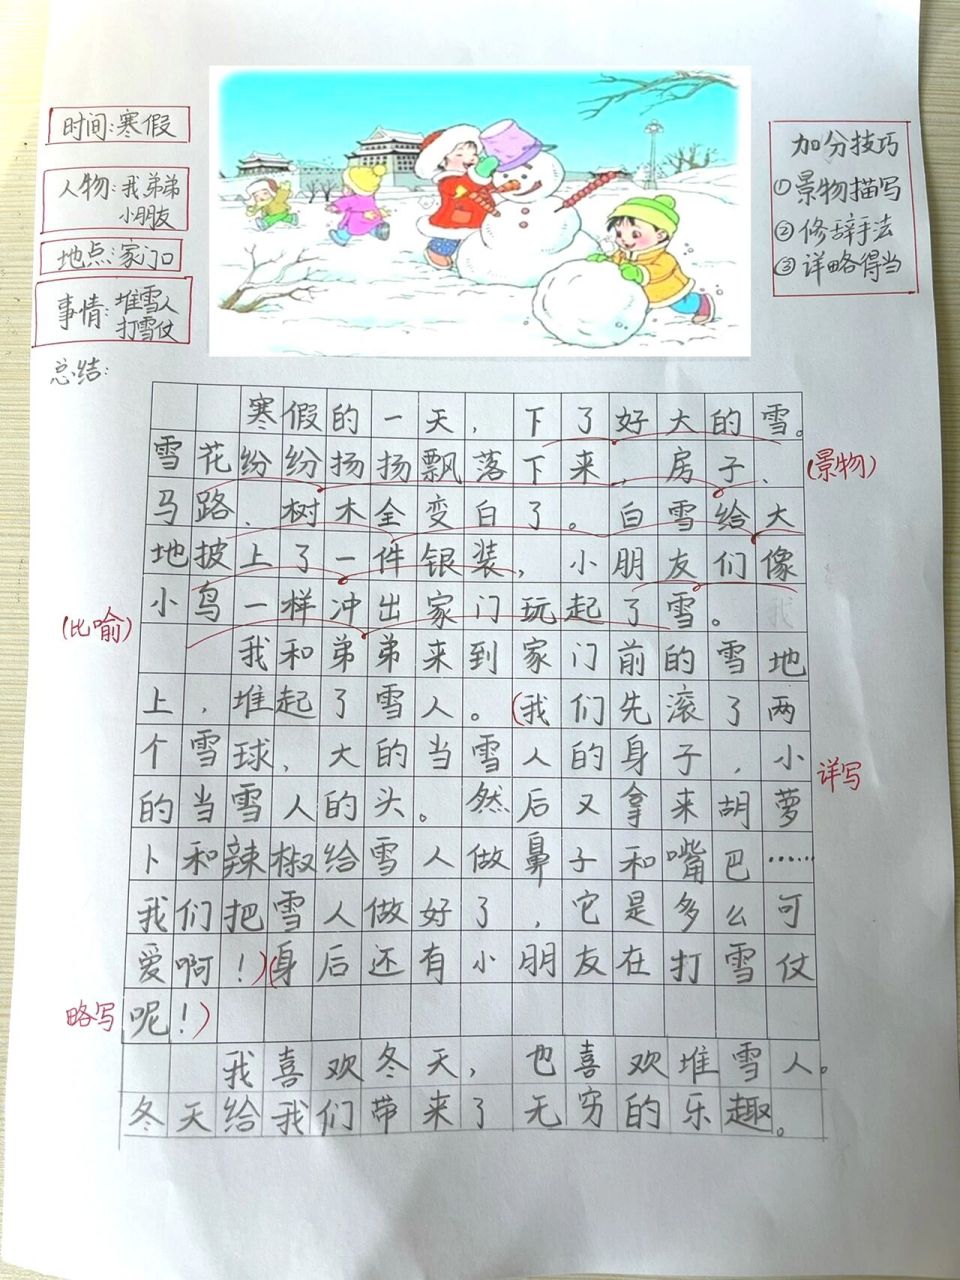 时间:寒假
人物:我弟弟
小朋友
地点:家门口
事情:堆雪人
打雪仗
总结:
加分技巧
①景物描写
②修辞手法
③详略得当
寒假的一天，下了好大的雪。
雪花纷纷扬扬飘落下来，房子、
(景物)
马路、树木全变白了。白雪给大
地披上了一件银装，小朋友们像
小鸟一样冲出家门玩起了雪。我
(比喻)
我和弟弟来到家门前的雪地
上，堆起了雪人。(我们先滚了两
个雪球，大的当雪人的身子，小
详写
的当雪人的头。然后又拿来胡萝
卜和辣椒给雪人做鼻子和嘴巴……
我们把雪人做好了，它是多么可
爱啊！)(身后还有小朋友在打雪仗
略写
呢！)
我喜欢冬天，也喜欢堆雪人。
冬天给我们带来了无穷的乐趣。